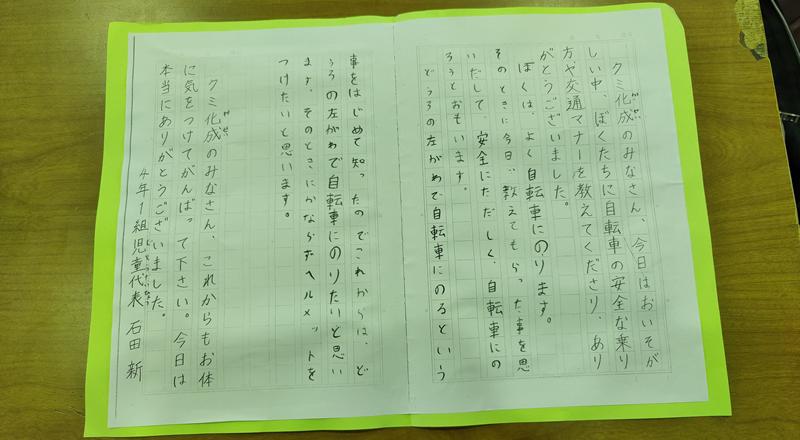 クミ化成のみなさん、今日はおいそが
しい中、ぼくたちに自転車の安全な乗り
方や交通マナーを教えてくださり、あり
がとうございました。
ぼくは、よく自転車にのります。
そのときに今日、教えてもらった事を思
いだして、安全にただしく、自転車にの
ろうとおもいます。
どうろの左がわで自転車にのるという
事をはじめて知ったのでこれからは、ど
うろの左がわで自転車にのりたいと思い
ます。そのときにかならずヘルメットを
つけたいと思います。
クミ化成のみなさん、これからもお体
に気をつけてがんばって下さい。今日は
本当にありがとうございました。
4年1組児童代表 石田 新